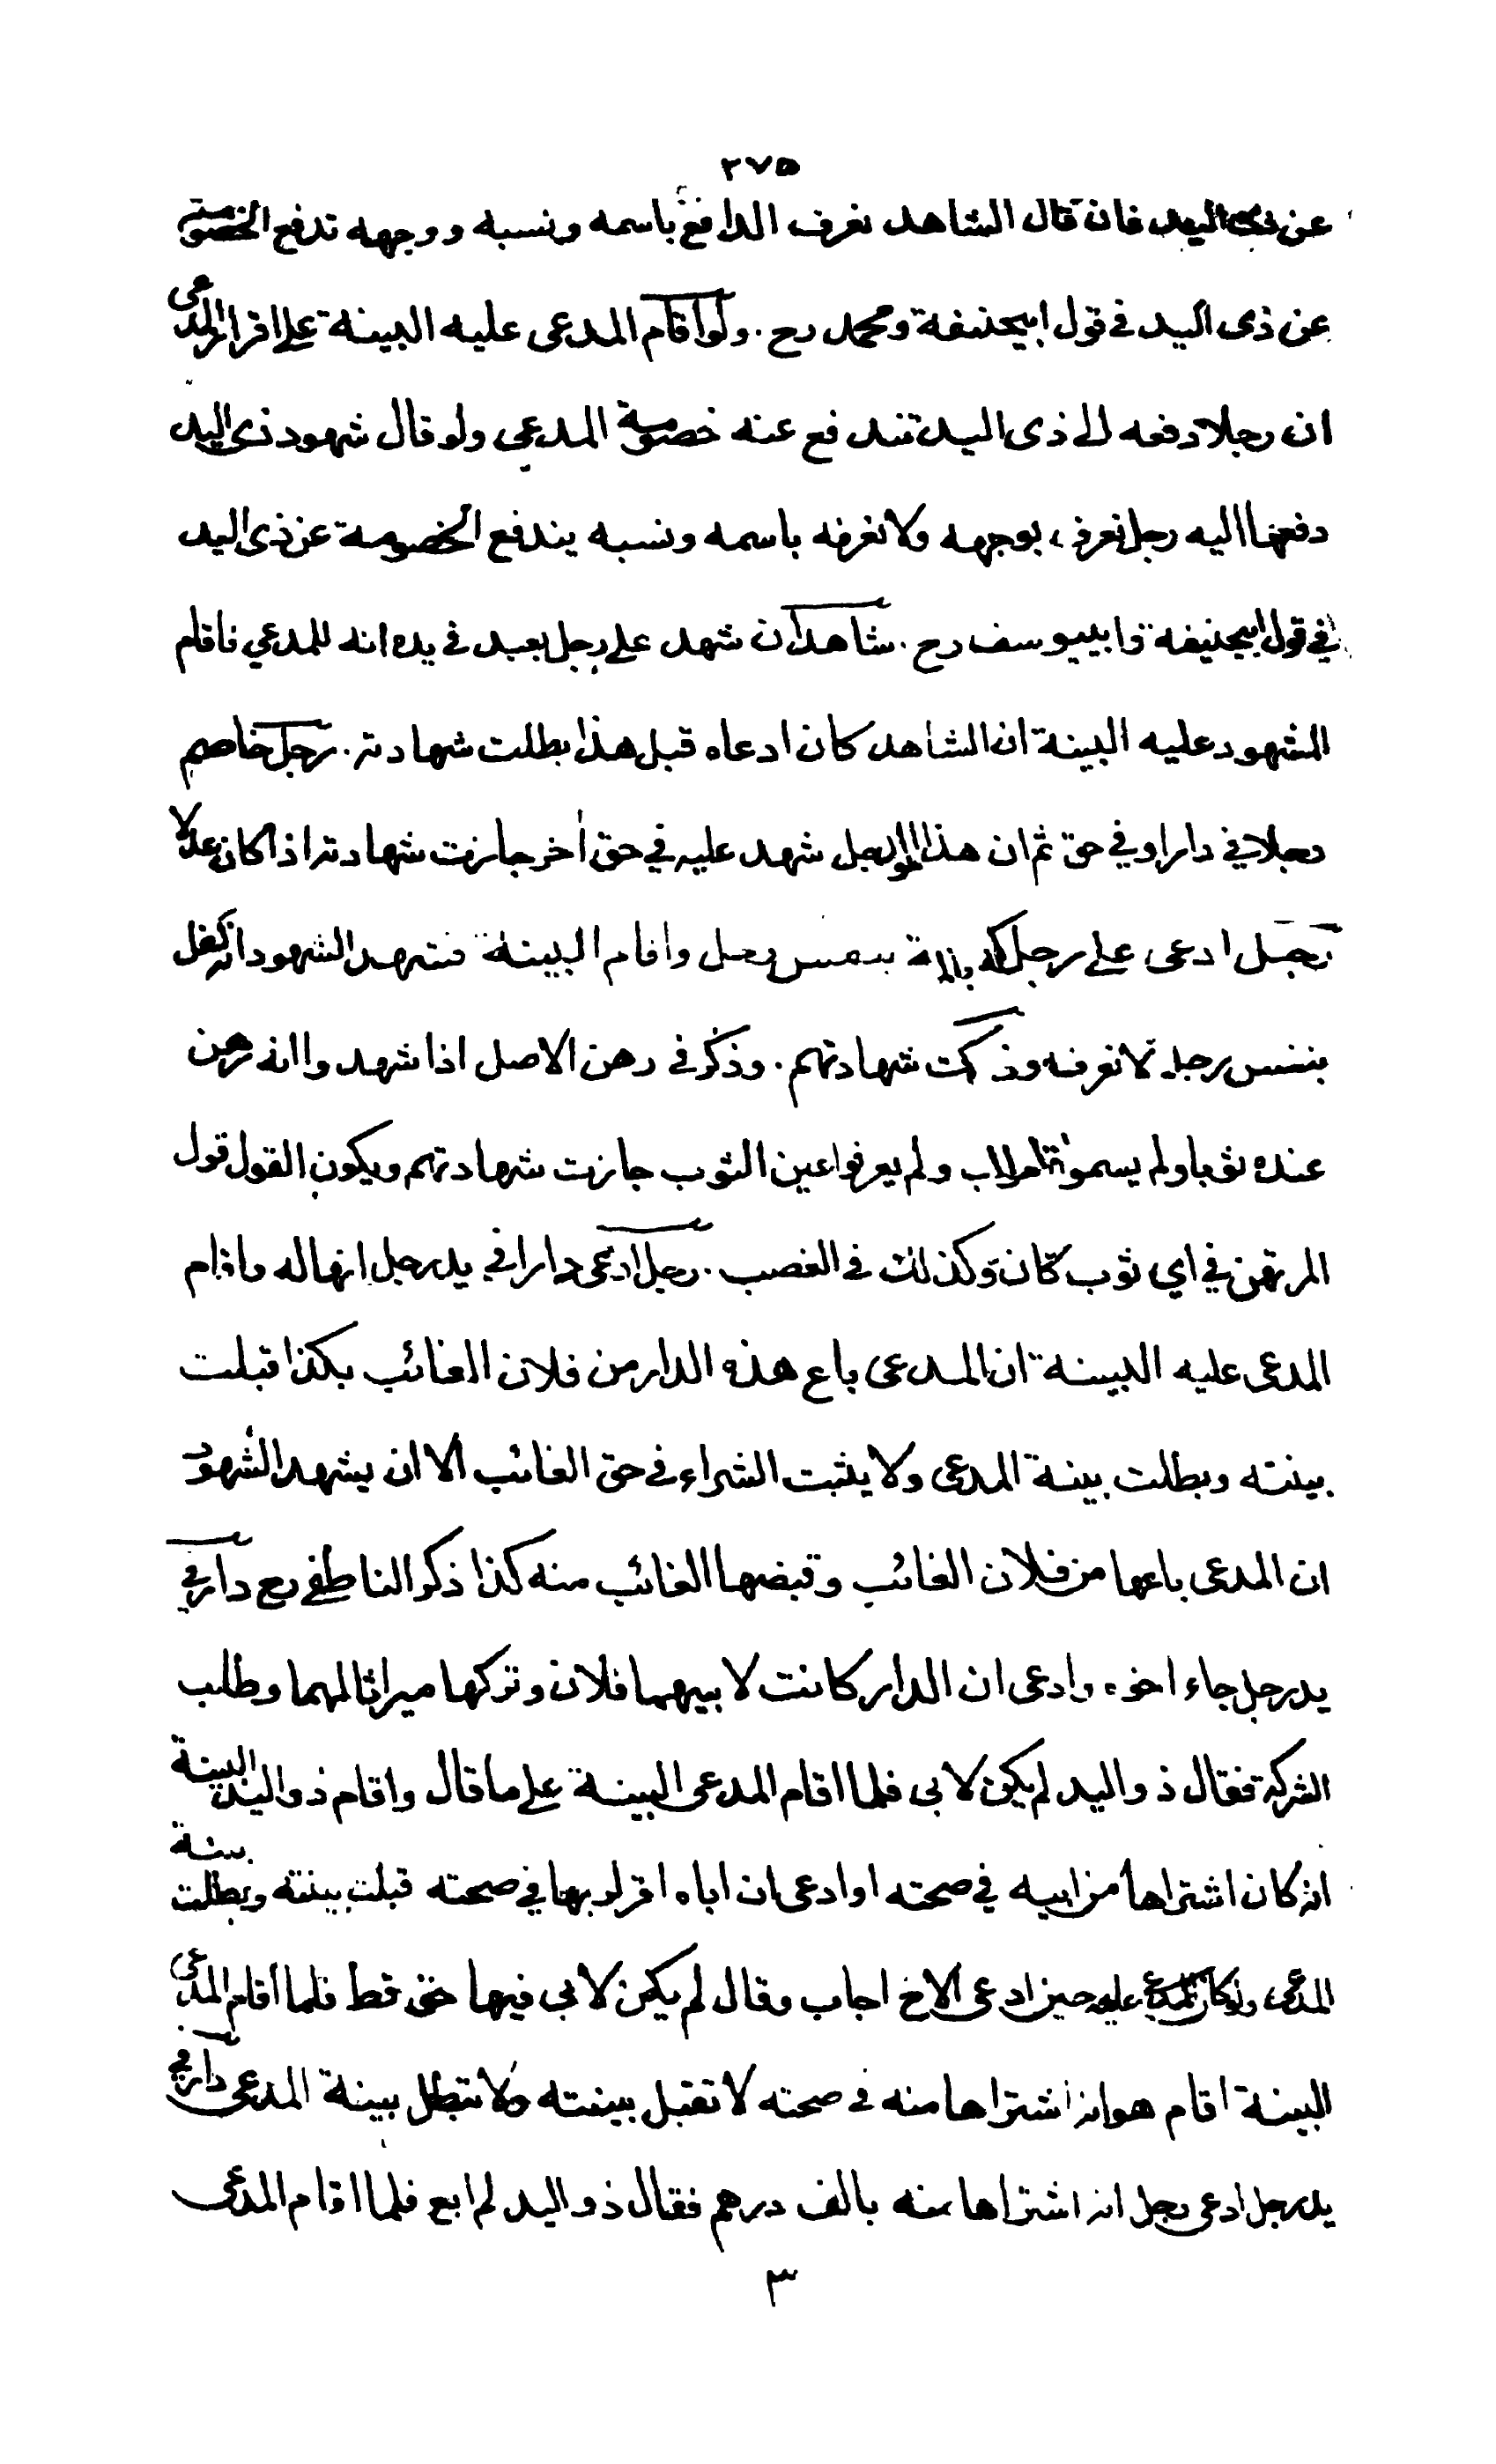 ٢٧٥
عن ذى اليد فان قال الشاهد نعرف الدافع باسمه ونسبه ووجهه تدفع الخصومة
عن ذى اليد في قول ابيحنيفة ومحمد رح . ولو اقام المدعى عليه البينة على اقرار المدعى
ان رجلا دفعه الى ذى اليد تندفع عنه خصومة المدعي ولو قال شهود ذى اليد
دفعها اليه رجل نعرفه بوجهه ولا نعرفه باسمه ونسبه يندفع الخصومة عن ذى اليد
في قول ابيحنيفة وابييوسف رح . شاهدان شهد على رجل بعبد في يده انه للمدعي فاقام
المشهود عليه البينة ان الشاهد كان ادعاه قبل هذا بطلت شهادته . رجل خاصم
رجلا في دار او في حق ثم ان هذا الرجل شهد عليه في حق اخر جازت شهادته اذا كان عدلا
رجل ادعى على رجل بنفس رجل واقام البينة فشهد الشهود انه كفل
بنفس رجل لا نعرفه شهادتهم . وذكر في رهن الاصل اذا شهدوا انه رهن
عنده ثوبا ولم يسموا ولم يعرفوا عين الثوب جازت شهادتهم ويكون القول قول
المرتهن في اي ثوب كان وكذلك في الغصب . رجل ادعى دارا في يد رجل انها له واقام
المدعى عليه البينة ان المدعى باع هذه الدار من فلان الغائب بكذا قبلت
بينته وبطلت بينة المدعى ولا يثبت الشراء في حق الغائب الا ان يشهد الشهود
ان المدعى باعها من فلان الغائب وقبضها الغائب منه كذا ذكر الناطفى رح دار في
يد رجل جاء اخوه وادعى ان الدار كانت لابيهما فلان وتركها ميراثا لهما وطلب
الشركة فقال ذو اليد لم يكن لابى فلما اقام المدعى البينة على ما قال واقام ذو اليد البينة
انه كان اشتراها من ابيه في صحته او ادعى ان اباه اقر له بها في صحته قبلت بينته وبطلت بينة
المدعى ولو كان المدعى عليه حين ادعى الاخ اجاب وقال لم يكن لابى فيها حق قط فلما اقام المدعى
البينة اقام هو انه اشتراها منه في صحته لا تقبل بينته ولا تبطل بينة المدعى دار في
يد رجل ادعى رجل انه اشتراها منه بالف درهم فقال ذو اليد لم ابع فلما اقام المدعى
٣